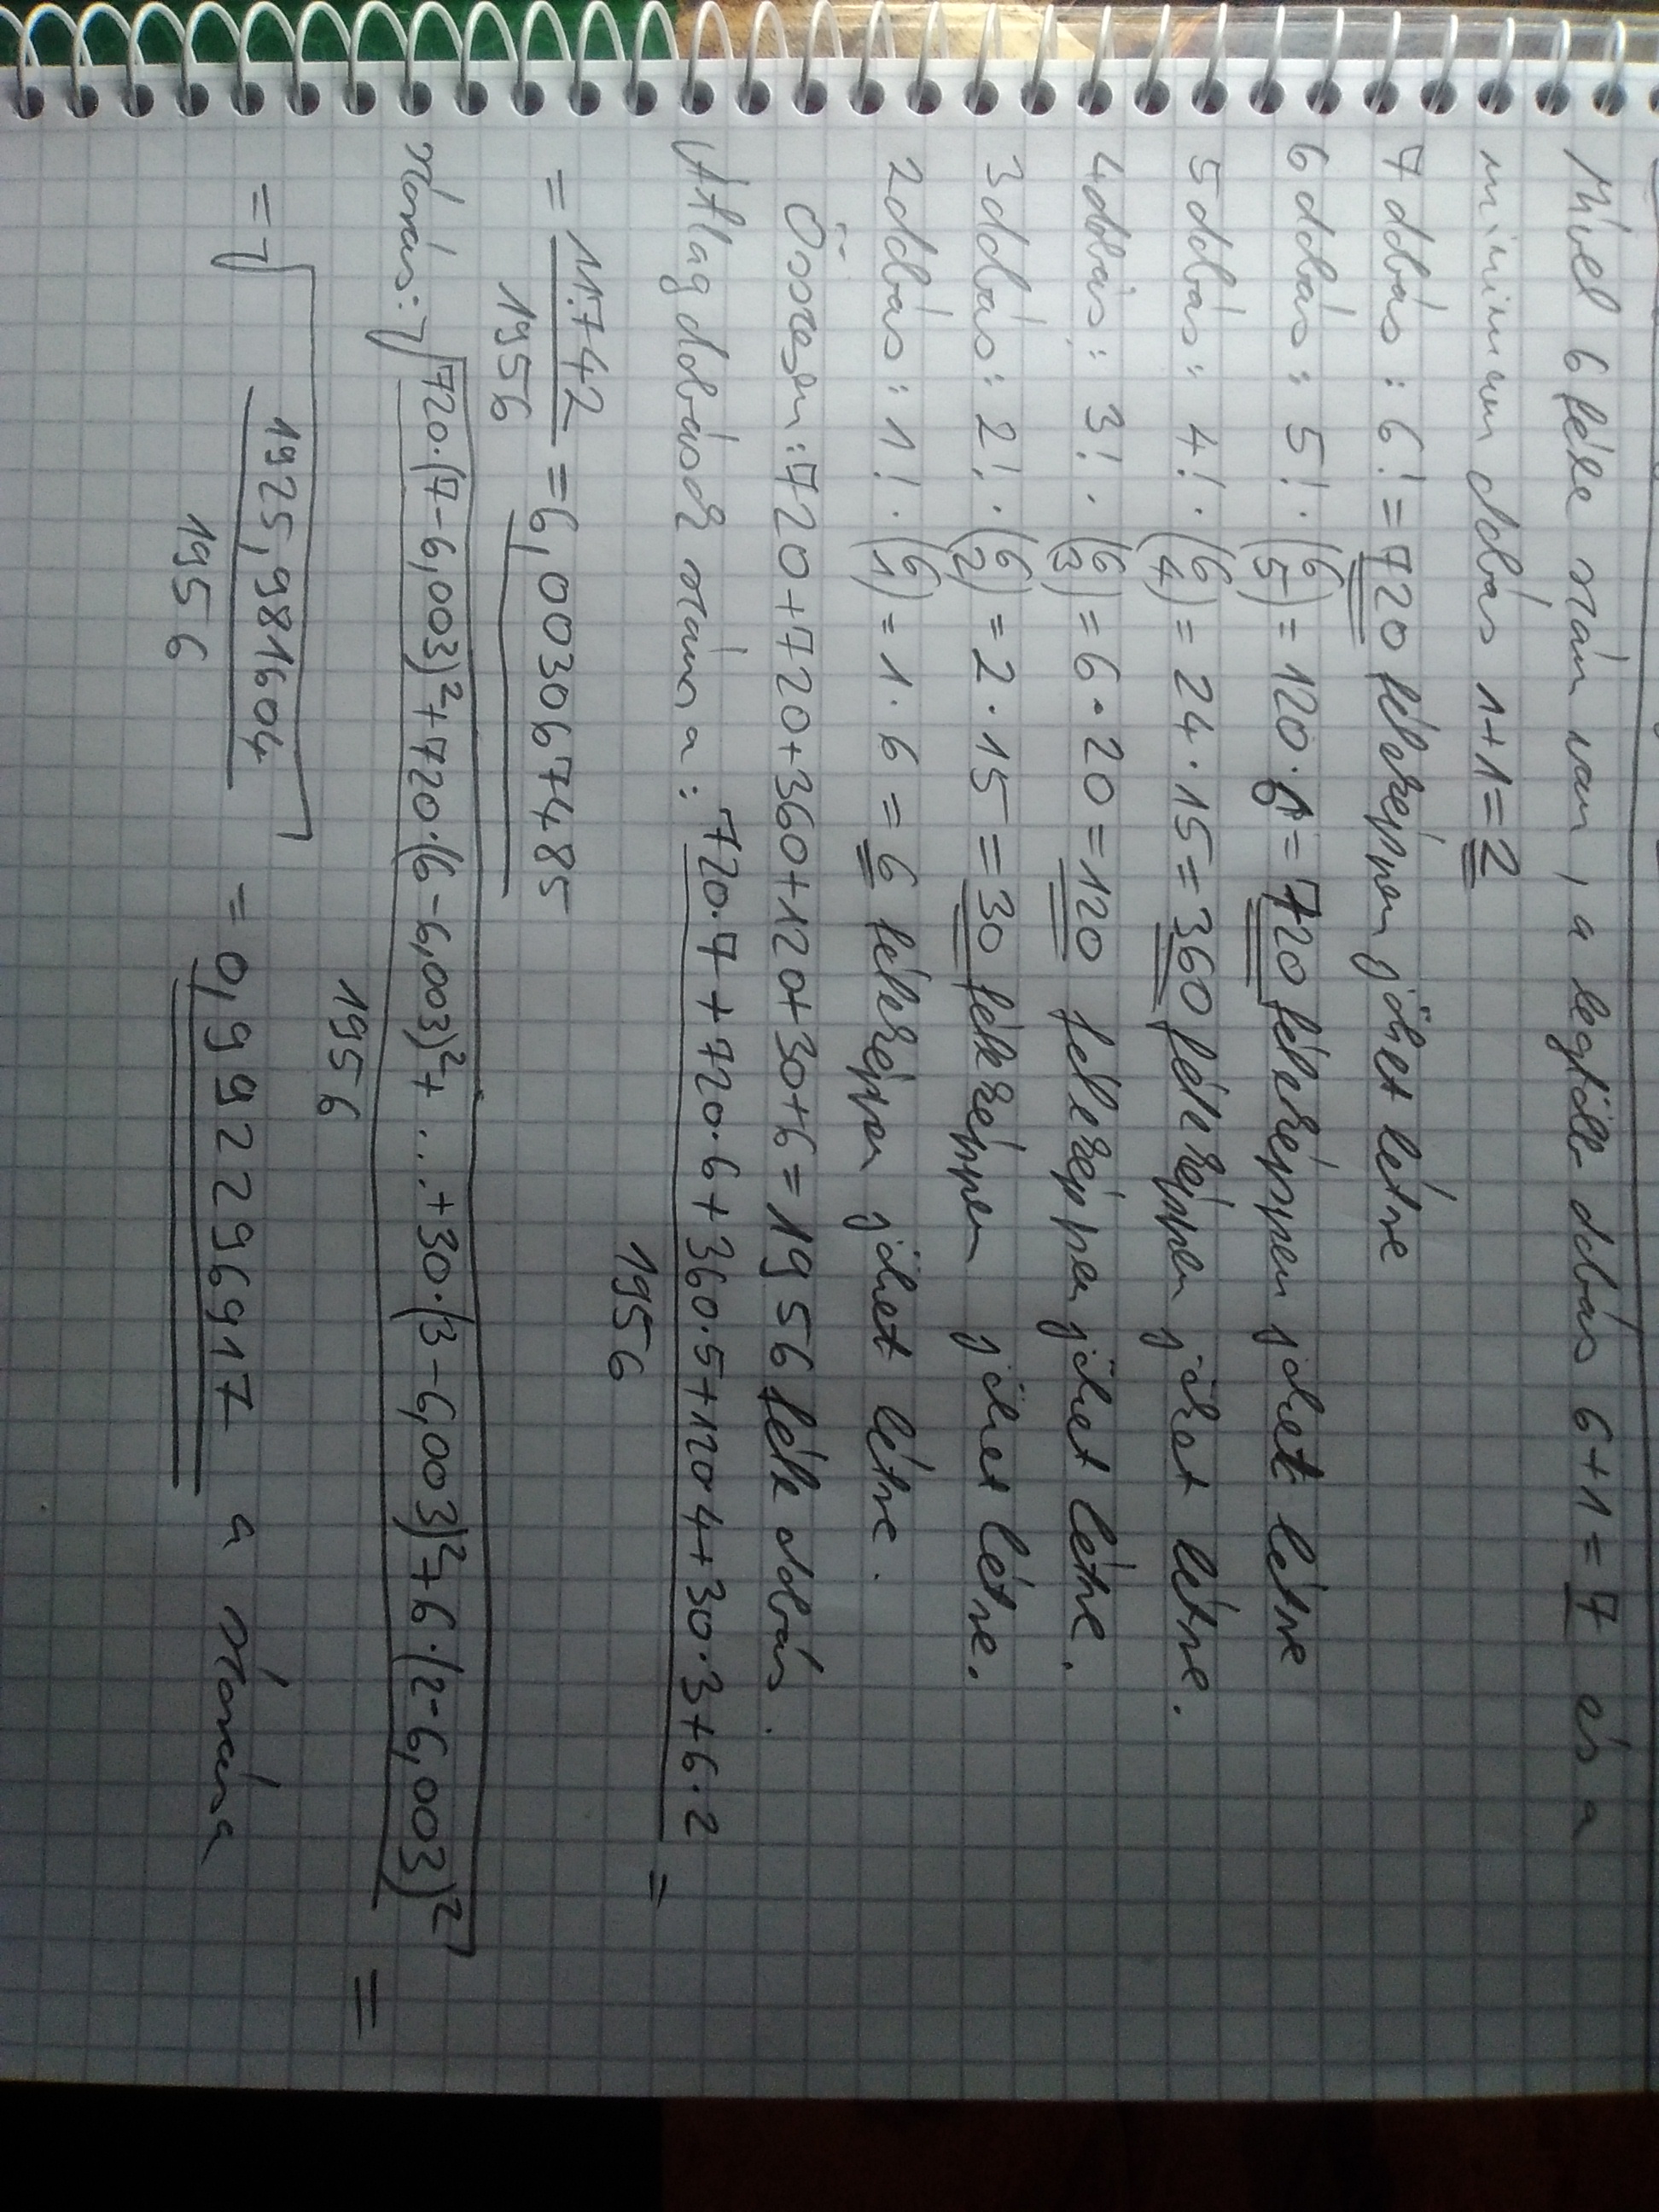 Mivel 6 féle szám van, a legtöbb dobás 6+1=7 és a
minimum dobás 1+1=2
7 dobás: 6! = 720 féleképpen jöhet létre
6 dobás: 5! · (6 5) = 120 · 6 = 720 féleképpen jöhet létre
5 dobás: 4! · (6 4) = 24 · 15 = 360 féleképpen jöhet létre.
4 dobás: 3! · (6 3) = 6 · 20 = 120 féleképpen jöhet létre.
3 dobás: 2! · (6 2) = 2 · 15 = 30 féleképpen jöhet létre.
2 dobás: 1! · (6 1) = 1 · 6 = 6 féleképpen jöhet létre.
Összesen: 720+720+360+120+30+6 = 1956 féle dobás.
Átlag dobások száma: 720·7+720·6+360·5+120·4+30·3+6·2 / 1956 =
= 11742 / 1956 = 6,003067485
szórás: √ 720·(7-6,003)²+720·(6-6,003)²+...+30·(3-6,003)²+6·(2-6,003)² / 1956 =
= √ 1925,981604 / 1956 = 0,992296917 a szórása